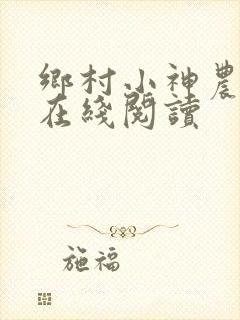 鄉村小神農
在綫閱讀
施福